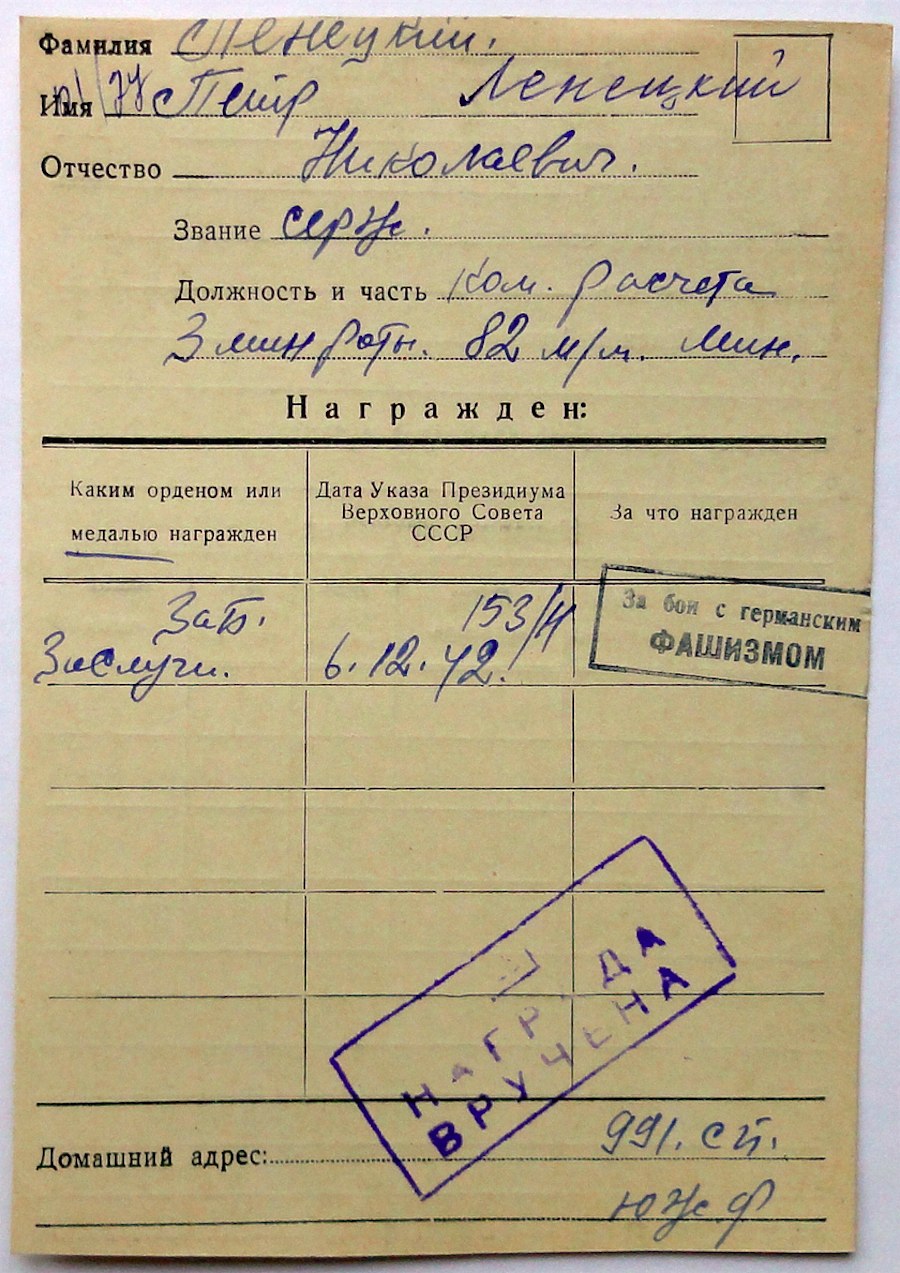 Фамилия Пенецкий.
Имя Петр Ленецкий
Отчество Николаевич.
Звание серж.
Должность и часть Ком. расчета
3 мин роты. 82 м/м. мин.
Награжден:
Каким орденом или
медалью награжден
Дата Указа Президиума
Верховного Совета
СССР
За что награжден
За Б.
Заслуги.
153/н
6.12.42.
За бои с германским
ФАШИЗМОМ
НАГРАДА
ВРУЧЕНА
Домашний адрес: 991. сп.
Юж Ф